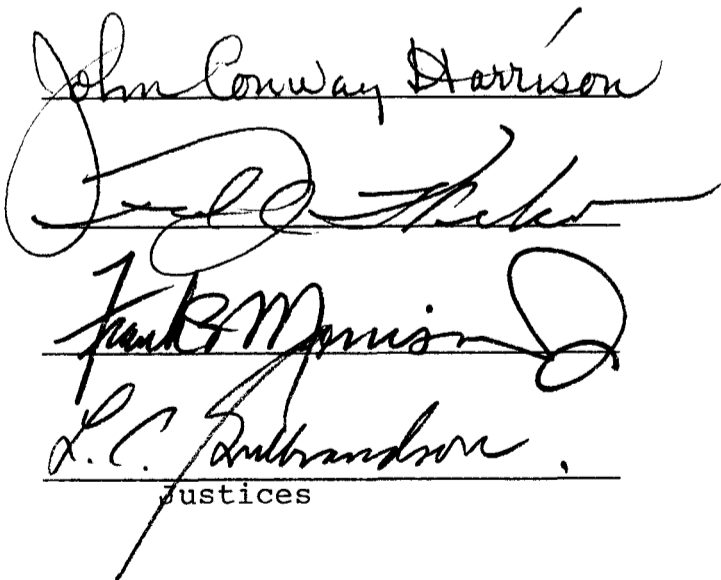 John Conway Harrison
Fred J. Weber
Frank B. Morrison Jr.
L. C. Gulbrandson.
Justices